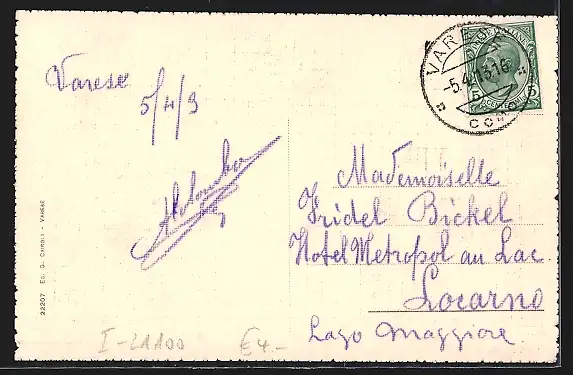 Varese
5/4/9
VARESE
-5.4.13.16
COMO
5 5
Mademoiselle
Fridel Bickel
Hotel Metropol au Lac
Locarno
Lago Maggiore
22207 Ed. G. - VARESE
I-21100 €4-